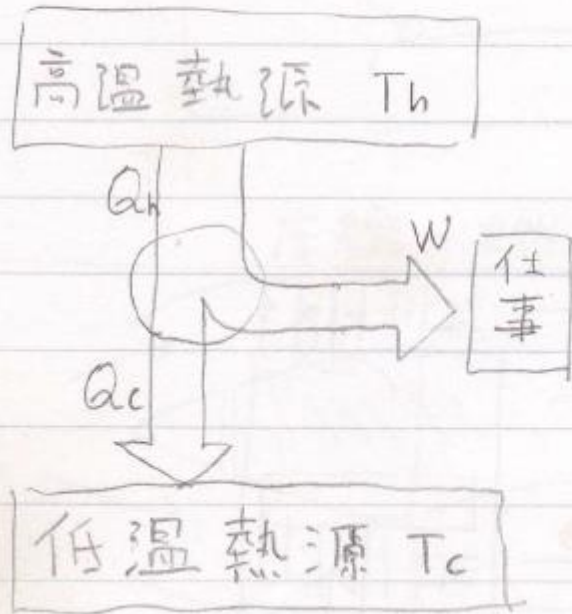 高温熱源 Th
Qh
W
仕事
Qc
低温熱源 Tc